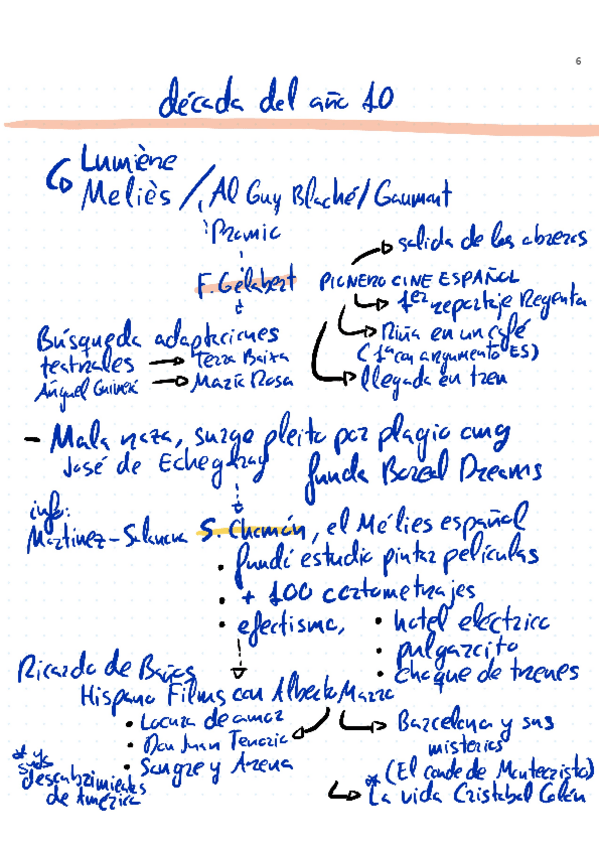 6
década del año 10
Lumiène
Meliès / Al Guy Blaché / Gaumont
Promio
salida de los obreros
F. Gelabert PIONERO CINE ESPAÑOL
1er reportaje Regenta
Búsqueda adaptaciones
Riña en un café
teatrales → Terra Baixa
(1ª con argumento ES)
Ángel Guimerá → María Rosa
llegada en tren
- Mala raza, surge pleito por plagio
José de Echegaray funda Boreal Dreams
info:
Martínez-Salanova S. Chomón, el Mélies español
• fundó estudio pintar películas
• + 100 cortometrajes
• efectismo, • hotel eléctrico
• pulgarcito
• choque de trenes
Ricardo de Baños
Hispano Films con Alberto Marro
• Locura de amor
Barcelona y sus
misterios
• Don Juan Tenorio
• Sangre y Arena
(El conde de Montecristo)
* y sus
descubrimientos
de América
* La vida Cristobal Colón